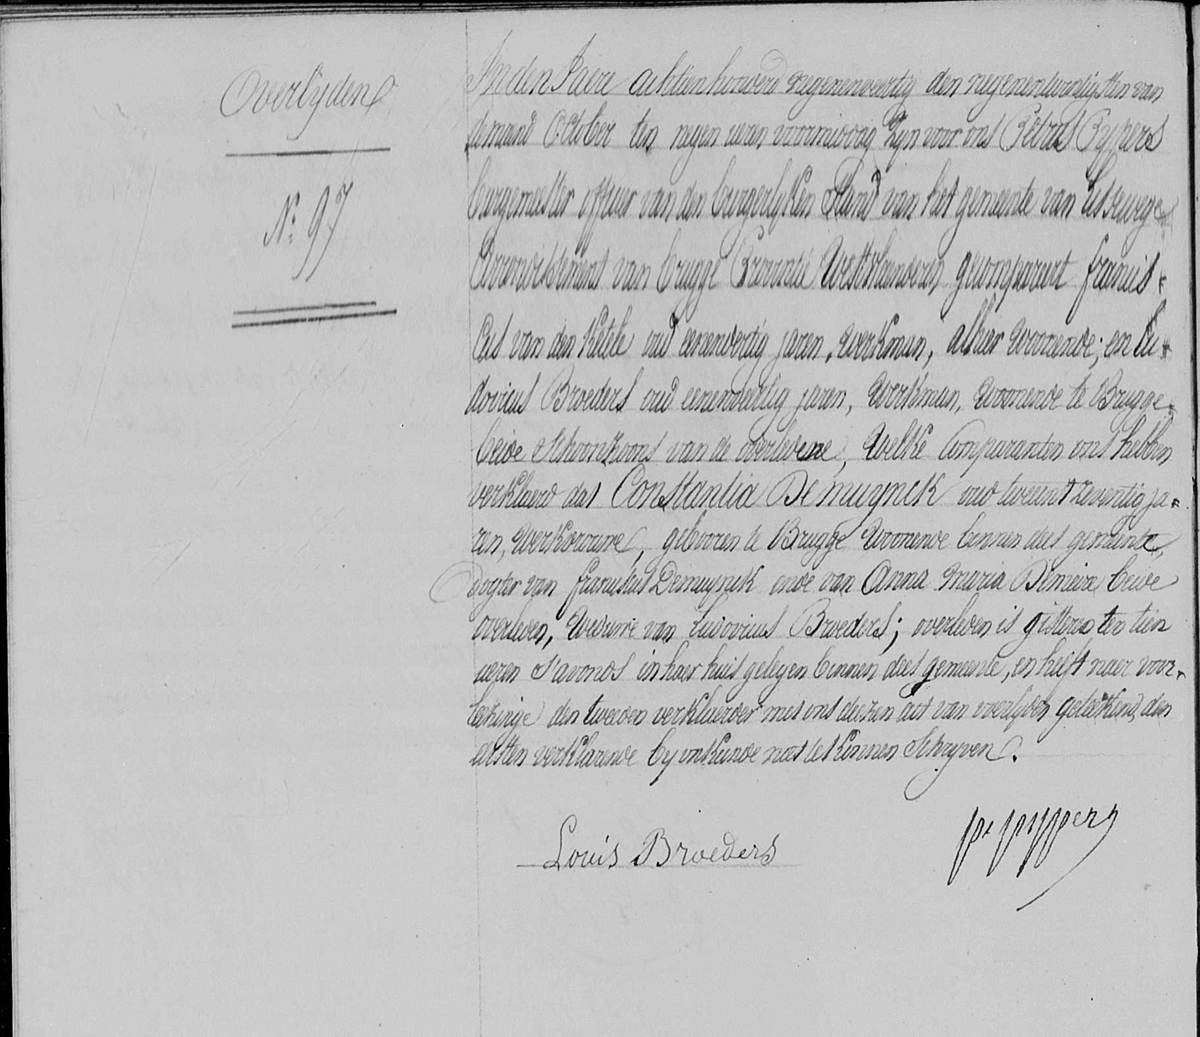 Overlyden
N: 97
In den Jaere achtienhonderd negenenveertig den negenentwintigsten van
de maend October ten negen ueren voormiddag zijn voor ons Petrus Pypers
burgemeester officier van den burgerlyken Stand van het gemeente van Lissewege
Arrondissement van brugge Provintie Westvlaenderen gecompareert francis=
cus van den Ketele oud eenenvertig jaren, werkman, alhier woonende; en Lu=
dovicus Broeders oud eenenveertig jaren, werkman, woonende te Brugge
beide Schoonzoons van de overledene, welke Comparanten ons hebben
verklaerd dat Constantia Demuynck oud tweentzeventig ja=
ren, werkvrouwe, gebooren te Brugge woonende binnen dees gemeente,
dogter van franciscus Demuynck ende van Anna Maria
beide
overleden, weduwe van Ludovicus Broeders; overleden is gisteren ten tien
ueren s'avonds in haer huis gelegen binnen dees gemeente, en heeft naer voor=
lezinge den tweeden verklaerder met ons deezen act van overlyden geteekend, den
eersten verklaerende by onkunde niet te konnen Schryven.
Louis Broeders
P. Pyppers